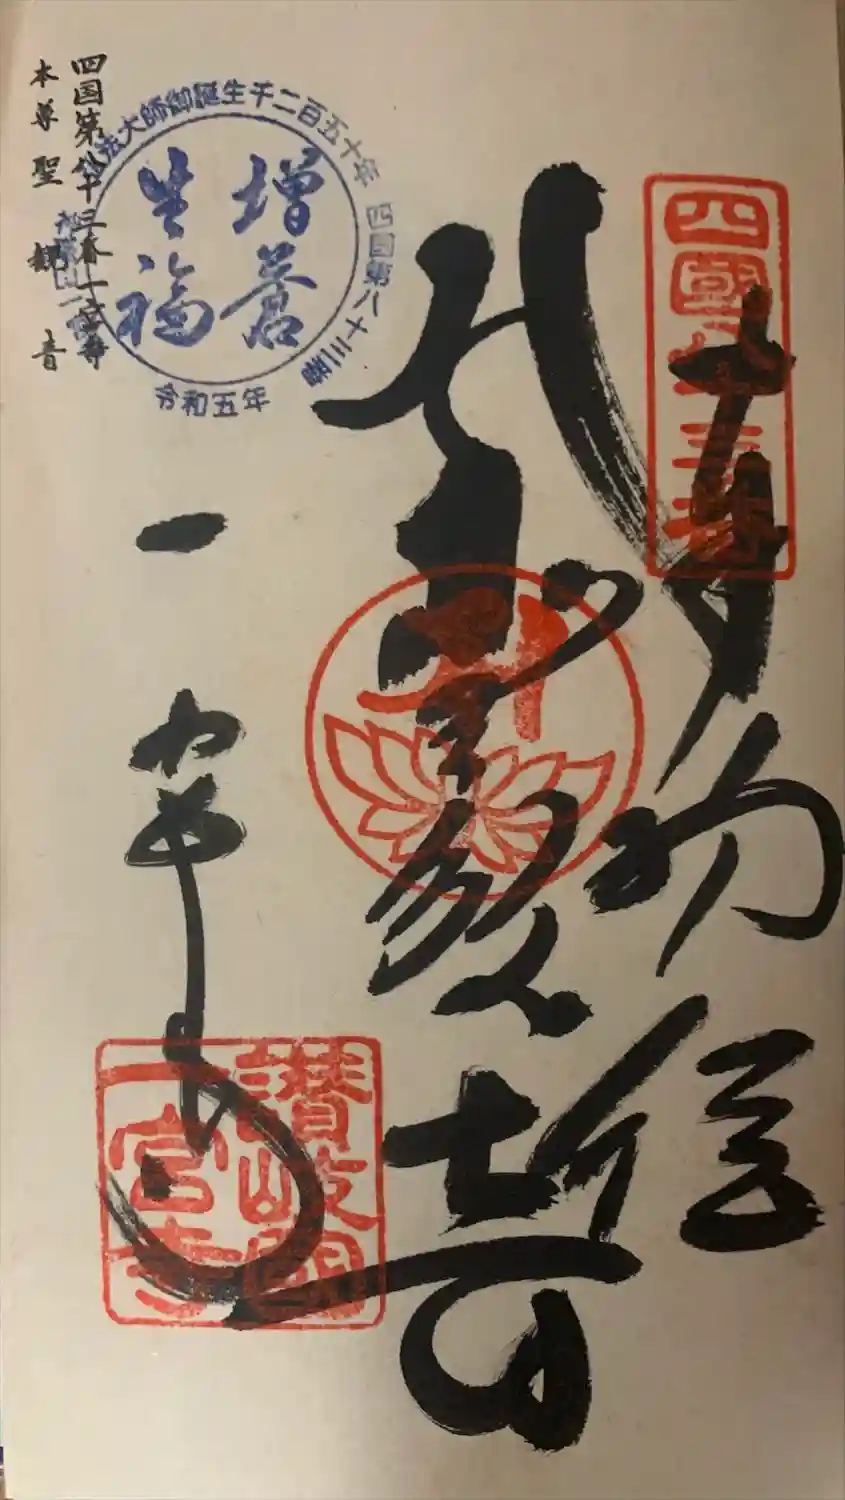 四国第八十三番一宮寺
本尊聖観音
弘法大師御誕生千二百五十年
四国第八十三番
令和五年
増益
生福
四國八十三番
奉納経
聖観音
一宮寺
讃岐國
一宮寺